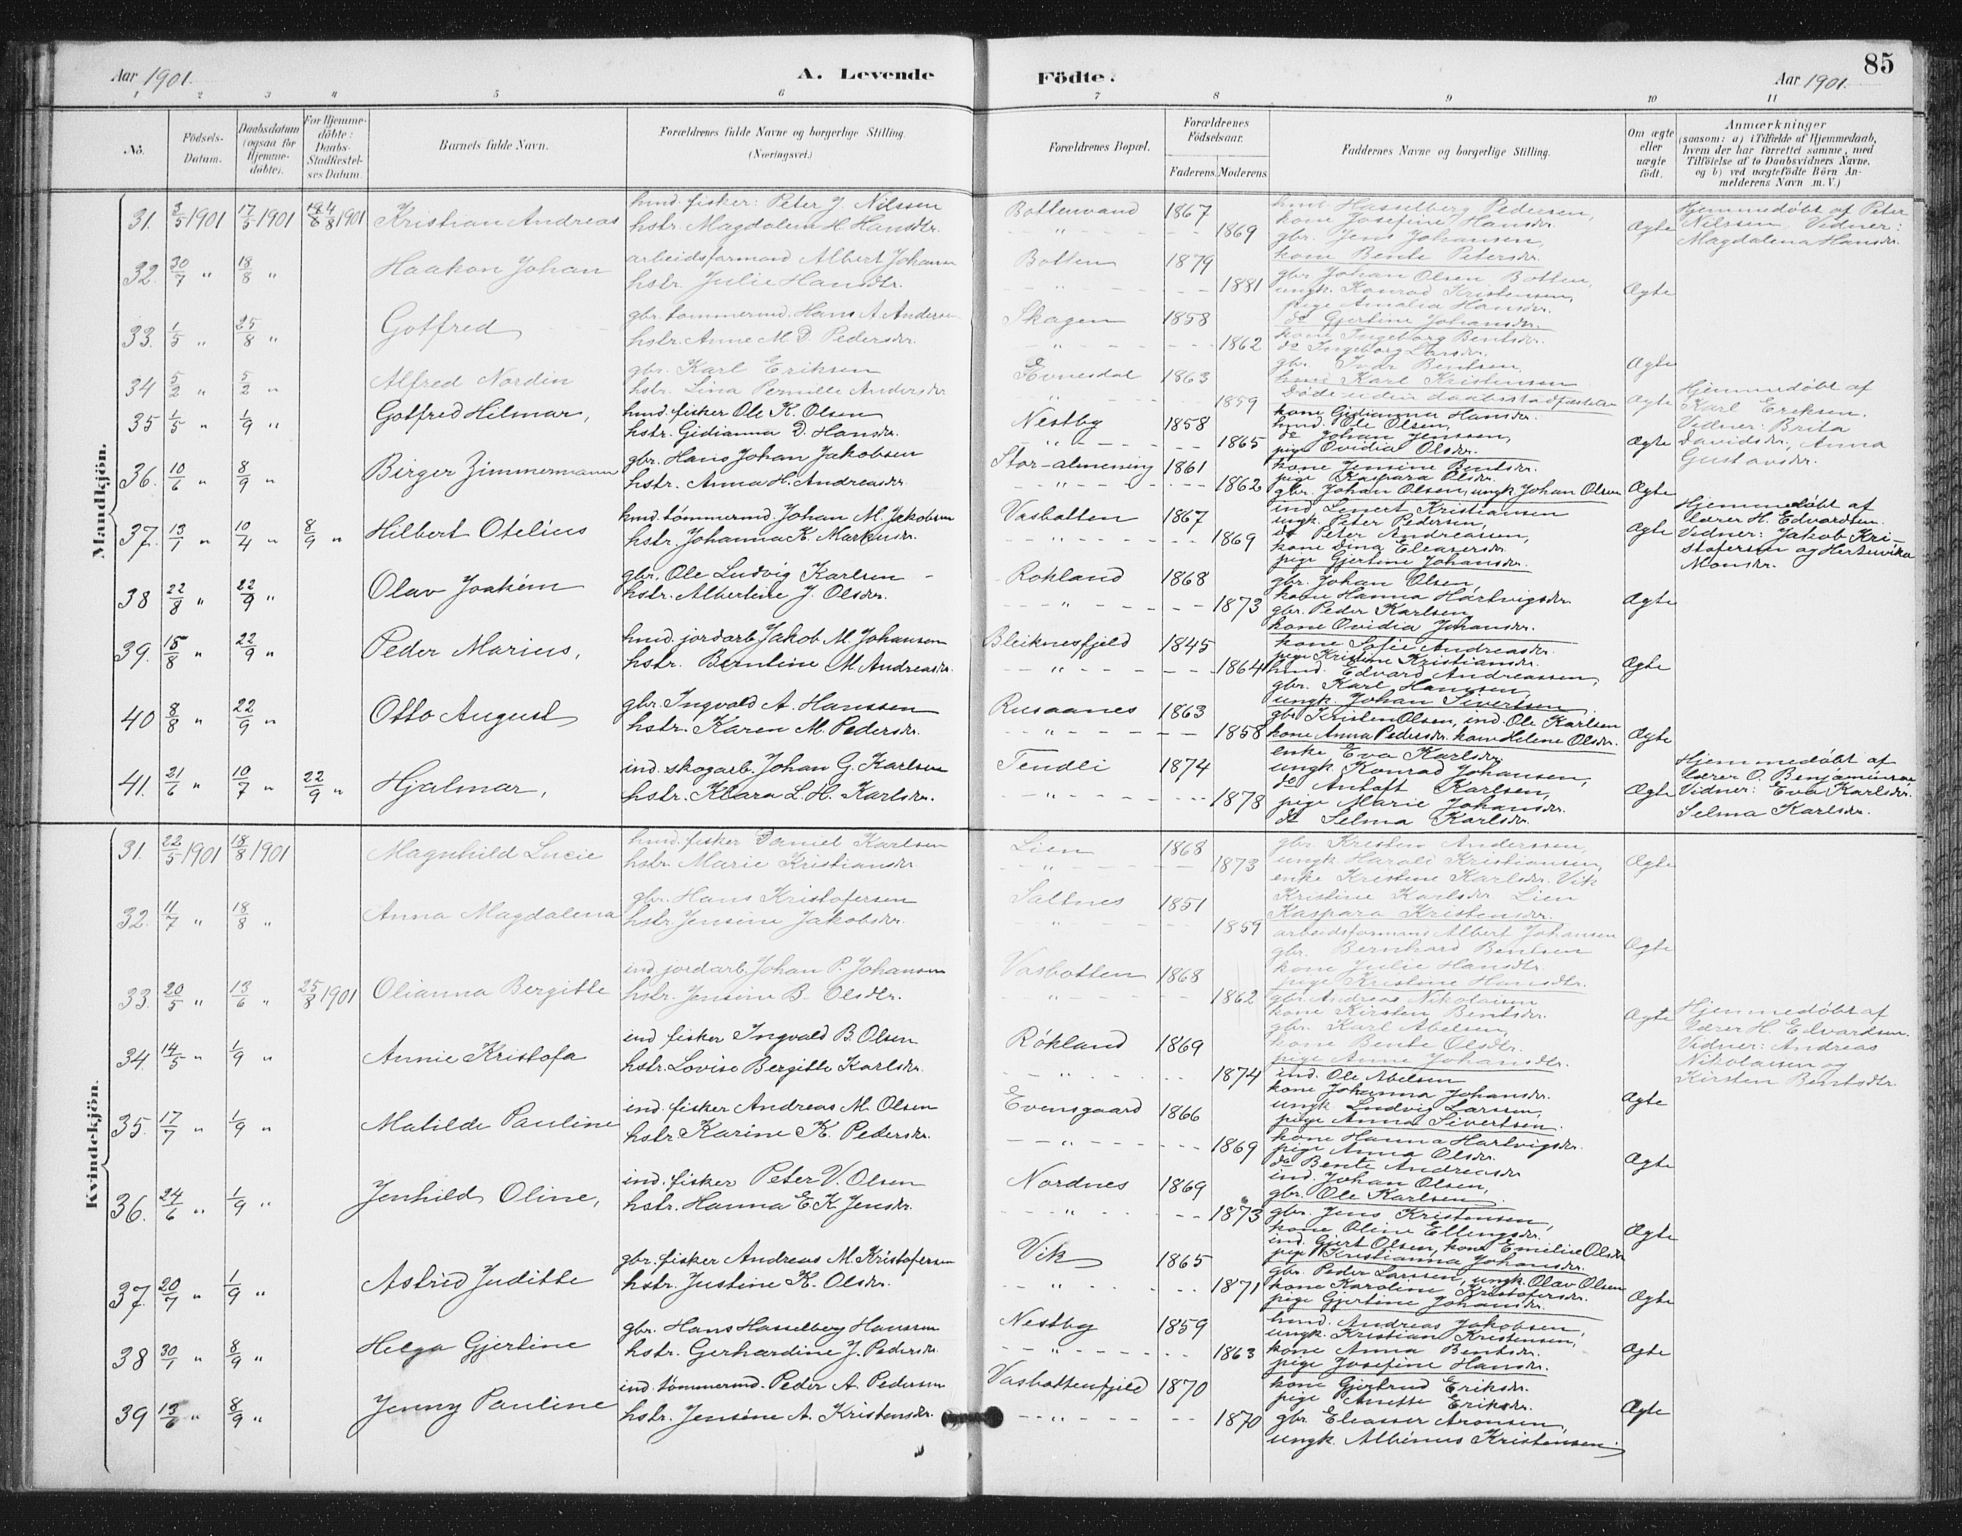 Aar 1901.
A. Levende
Födte.
Aar 1901.
85
1 2 3 4 5 6 7 8 9 10 11
No. Födsels-Datum. Daabsdatum (ogsaa for Hjemme-döbte). For Hjemme-döbte: Daabs-Stadfæstel-ses Datum. Barnets fulde Navn. Forældrenes fulde Navne og borgerlige Stilling. (Næringsvei.) Forældrenes Bopæl. Forældrenes Födselsaar. Faderens. Moderens. Faddernes Navne og borgerlige Stilling. Om ægte eller uægte födt. Anmærkninger (saasom: a) i Tilfælde af Hjemmedaab, hvem der har forrettet samme, med Tilföielse af to Daabsvidners Navne, og b) ved uægtefödte Börn An-melderens Navn m. V.)
Mandkjön.
31. 3/5 1901 17/5 1901 18/8 1901 Kristian Andreas
hmd. fisker: Peter J. Nilssen
hstr. Magdalena H. Hansdtr.
Bottenvand 1867
1869
hmd. Hasselberg Pedersen,
kone Josefine Hansdr.
gbr. Jens Johansen,
kone Bente Petersdr.
Ægte
Hjemmedøbt af Peter
Nilssen. Vidner:
Magdalena Hansdr.
32. 30/7 " 18/8 " Haakon Johan
arbeidsformand Albert Johansen
hstr. Julie Hansdtr.
Botten 1879
1881
gbr. Johan Olsen Botten,
ungk. Konrad Kristensen,
pige Amalia Hansdr.
do Gjertine Johansdr.
Ægte
33. 1/5 " 25/8 " Gotfred
gbr. tømmermd. Hans A. Andersen
hstr. Anne M. D. Pedersdr.
Skagen 1858
1862
kone Ingeborg Bentsdr.
do Ingeborg Larsdr.
gbr. Indr Bentsen,
hmd. Karl Kristensen
Ægte
34 5/2 " 5/2 " Alfred Nordin
gbr. Karl Eriksen
hstr. Lina Pernille Andersdr.
Evnesdal 1863
1859
Døde uden daabsstadfæstelse
Ægte
Hjemmedøbt af
Karl Eriksen.
Vidner: Brita
Davidsdr., Anna
Gustavsdr.
35 1/5 " 1/9 " Gotfred Hilmar,
hmd. fisker Ole K. Olsen
hstr. Gidianna D. Hansdr.
Nestby 1858
1865
kone Gidianna Hansdr.
hmd. Ole Olsen,
do Johan Jenssen,
pige Ovidia Olsdr.
Ægte
36. 10/6 " 8/9 " Birger Zimmermann
gbr. Hans Johan Jakobsen
hstr. Anna H. Andreasdr.
Stor-almening 1861
1862
kone Jensine Bentsdr.
pige Kaspara Olsdr.
gbr. Johan Olsen, ungk. Johan Olsen
Ægte
37. 13/1 " 10/4 " 8/9 " Hilbert Otelius
hmd. tømmermd. Johan M. Jakobsen
hstr. Johanna K. Markusdr.
Vasbotten 1867
1869
ind. Lenert Kristiansen
ungk. Peter Pedersen,
do Peter Andreassen,
kone Dina Eleasersdr.
pige Gjertine Johansdr.
Ægte
Hjemmedøbt af
lærer H. Edvardsen.
Vidner: Jakob Kri-
stofersen og Hertenvika
Monsdr.
38 22/8 " 22/9 " Olav Joakim
gbr. Ole Ludvig Karlsen
hstr. Albertine J. Olsdr.
Rokland 1868
1873
gbr. Johan Olsen,
kone Hanna Hartvigsdr.
gbr. Peder Karlsen,
kone Ovidia Johansdr.
Ægte
39. 15/8 " 22/9 " Peder Marius,
hmd. jordarb. Jakob M. Johansen
hstr. Berntine M. Andreasdr.
Bleiknesfjeld 1845
1864
kone Sofie Andreasdr.
pige Kristine Kristiansdr.
hmd. Edvard Andreassen,
gbr. Karl Hanssen,
ungk. Johan Sivertsen.
Ægte
40 8/8 " 22/9 " Otto August
gbr. Ingvald A. Hanssen
hstr. Karen M. Pedersdr.
Rusaanes 1863
1858
gbr. Kristen Olsen, ind. Ole Karlsen
kone Anna Pedersdr. kone Helene Olsdr.
Ægte
41. 21/6 " 10/7 " 22/9 " Hjalmar,
ind. skogarb. Johan G. Karlsen
hstr. Klara L. H. Karlsdr.
Tendli 1874
1878
enke Eva Karlsdr.
ungk. Konrad Johansen,
do Antoft Karlsen,
pige Marie Johansdr.
do Selma Karlsdr.
Ægte
Hjemmedøbt af
lærer O. Benjaminsen
Vidner: Eva Karlsdr.
Selma Karlsdr.
Kvindekjön.
31. 22/5 1901 18/8 1901 Magnhild Lucie
hmd. fisker Daniel Karlsen
hstr. Marie Kristiansdr.
Lien 1868
1873
gbr. Kristen Anderssen,
ungk. Harald Kristiansen,
enke Kristine Karlsdr. Vik
Kristine Karlsdr Lien
Kaspara Kristensdr.
Ægte
32. 11/7 " 18/8 " Anna Magdalena
gbr. Hans Kristofersen
hstr. Jensine Jakobsdr.
Saltnes 1851
1859
arbeidsformand Albert Johansen
gbr. Bernhard Bentsen
kone Julie Hansdtr.
pige Kristine Hansdtr.
Ægte
33. 20/5 " 13/6 " 25/8 1901 Olianna Bergitte
ind. jordarb. Johan P. Johansen
hstr. Jensine B. Olsdtr.
Vasbotten 1868
1862
gbr. Andreas Nikolaisen
kone Kirsten Bentsdr.
gbr. Karl Abelsen,
kone Bente Olsdtr.
pige Anne Johansdtr.
Ægte
Hjemmedøbt af
Lærer H. Edvardsen.
Vidner: Andreas
Nikolaisen og
Kirsten Bentsdtr.
34. 14/5 " 1/9 " Annie Kristofa
ind. fisker Ingvald B. Olsen
hstr. Lovise Bergitte Karlsdr.
Røkland 1869
1874
ind. Ole Abelsen
kone Johanna Johansdr.
ungk. Ludvig Larssen,
pige Anna Sivertsen.
Ægte
35. 17/7 " 1/9 " Matilde Pauline
ind. fisker Andreas M. Olsen
hstr. Karine K. Pedersdr.
Evensgaard 1866
1869
kone Hanna Hartvigsdr.
pige Anna Olsdr.
do Bente Andreasdr
ind. Johan Olsen,
gbr. Ole Karlsen.
Ægte
36. 24/6 " 1/9 " Jenhild Oline,
ind. fisker Peter V. Olsen
hstr. Hanna E. K. Jensdr.
Nordnes 1869
1873
gbr. Jens Kristensen,
kone Oline Ellingsdr.
ind. Gjert Olsen, kone Emelise Olsdr
pige Kristianna Johansdr.
Ægte
37. 20/7 " 1/9 " Astrid Juditte
gbr. fisker Andreas M. Kristofersen
hstr. Justine K. Olsdr.
Vik 1865
1871
gbr. Peder Larssen, ungk. Olav Olsen
kone Karoline Kristofersdr.
pige Gjertine Johansdr.
Ægte
38 30/1 " 8/9 " Helga Gjertine
gbr. Hans Hasselberg Hanssen
hstr. Gerhardine J. Pedersdr.
Nestby 1859
1863
hmd. Andreas Jakobsen,
ungk. Kristian Kristensen,
kone Anna Bentsdr.
pige Josefine Hansdr.
Ægte
39 13/6 " 8/9 " Jenny Pauline
ind. tømmermd. Peder A. Pedersen
hstr. Jensine A. Kristensdr.
Vasbottenfjeld 1870
1870
kone Gjertrud Eriksdr.
pige Anette Eriksdr.
gbr. Eleasser Aronsen,
ungk. Albinus Kristensen.
Ægte